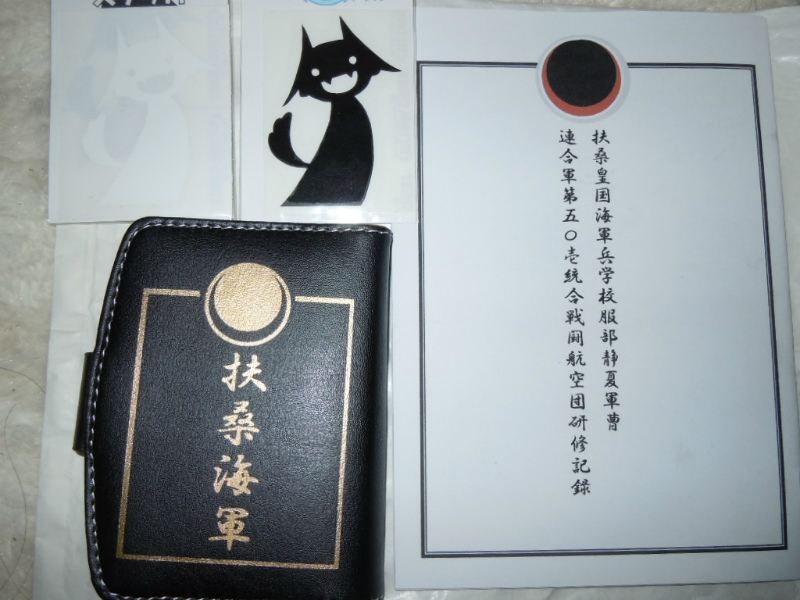 扶桑皇国海軍兵学校服部静夏軍曹
連合軍第五〇壱統合戦闘航空団研修記録
扶桑海軍